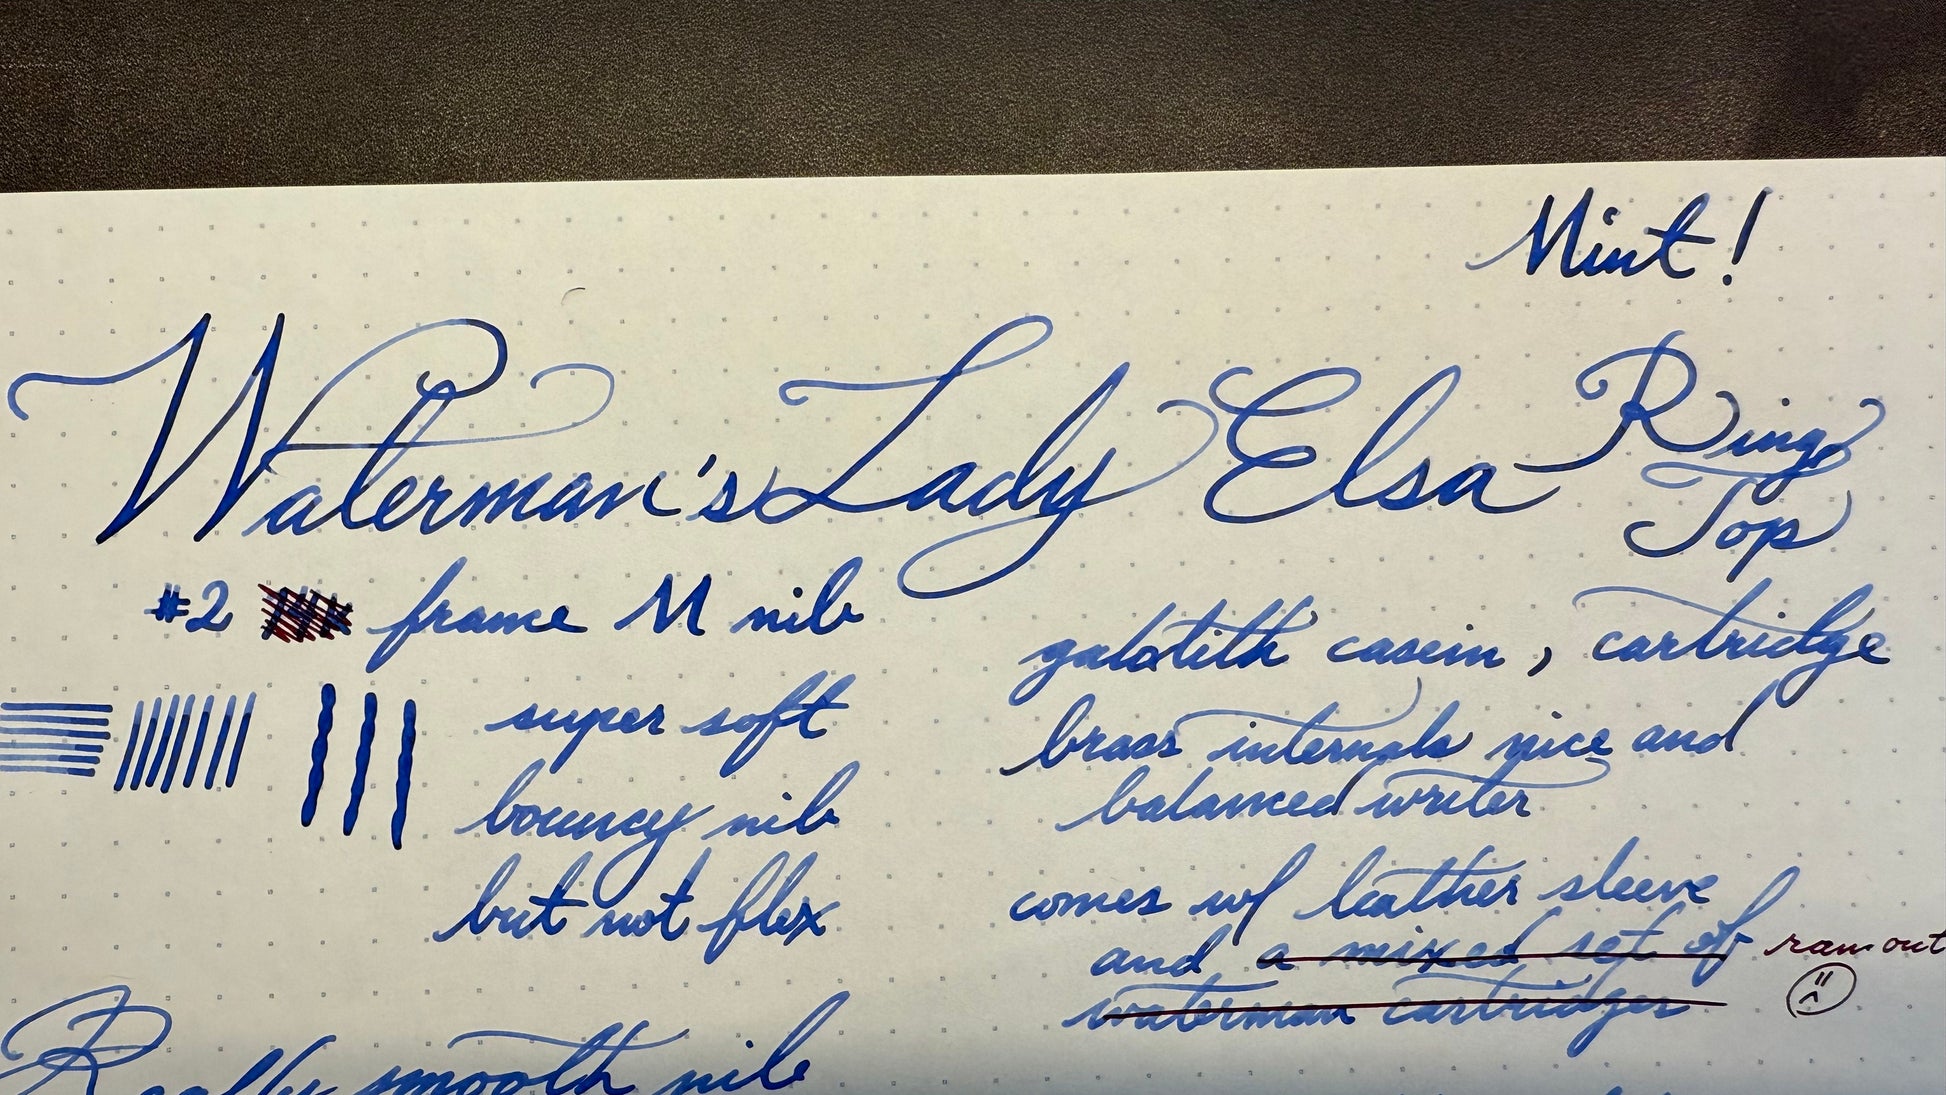 Mint!
Waterman's Lady Elsa Ring
Top
#2 frame M nib
super soft
bouncy nib
but not flex
Really smooth nib
galotith casein, cartridge
brass internals nice and
balanced writer
comes w/ leather sleeve
and a mixed set of ran out
waterman cartridges